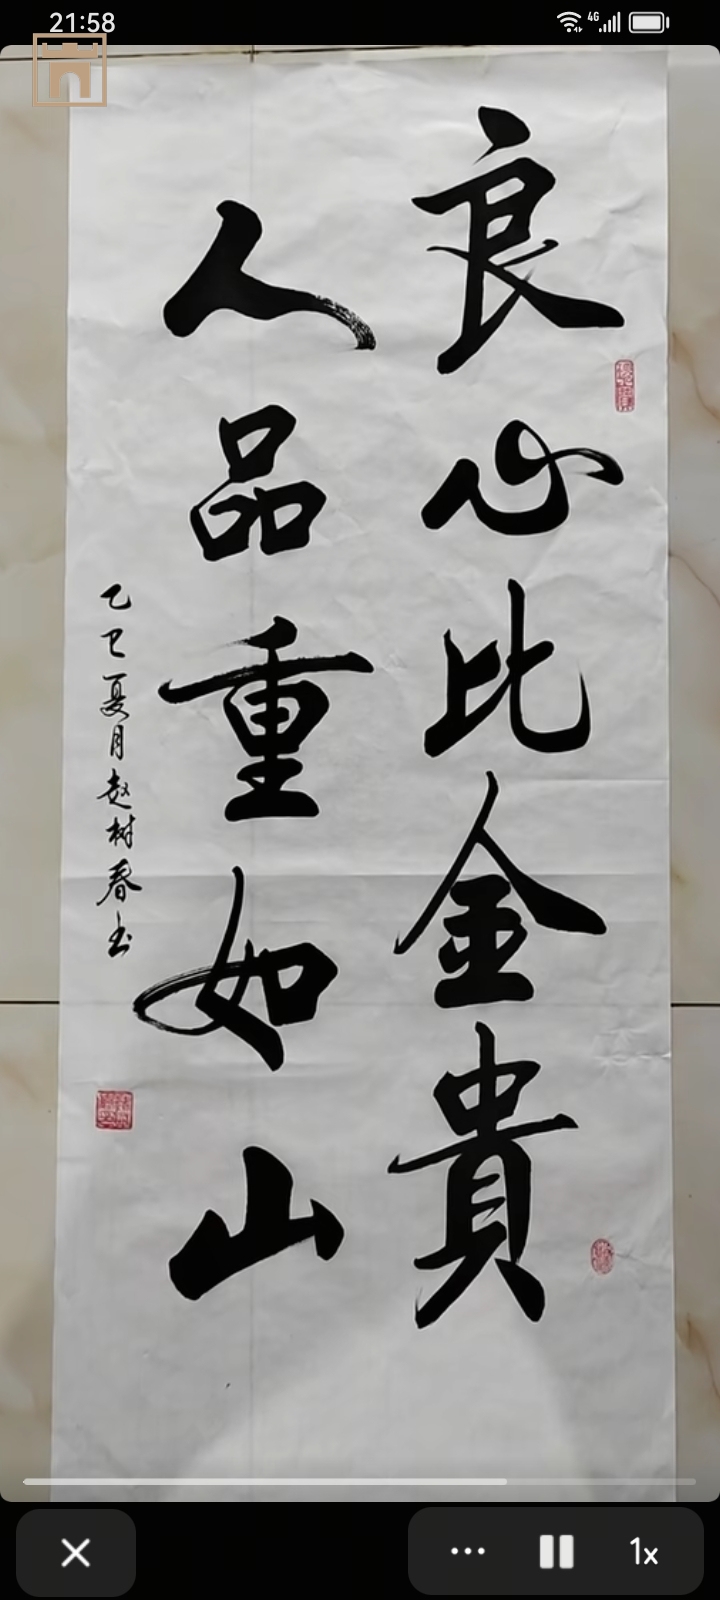 21:58
4G
良心比金貴
人品重如山
乙巳夏月赵树春书
1x